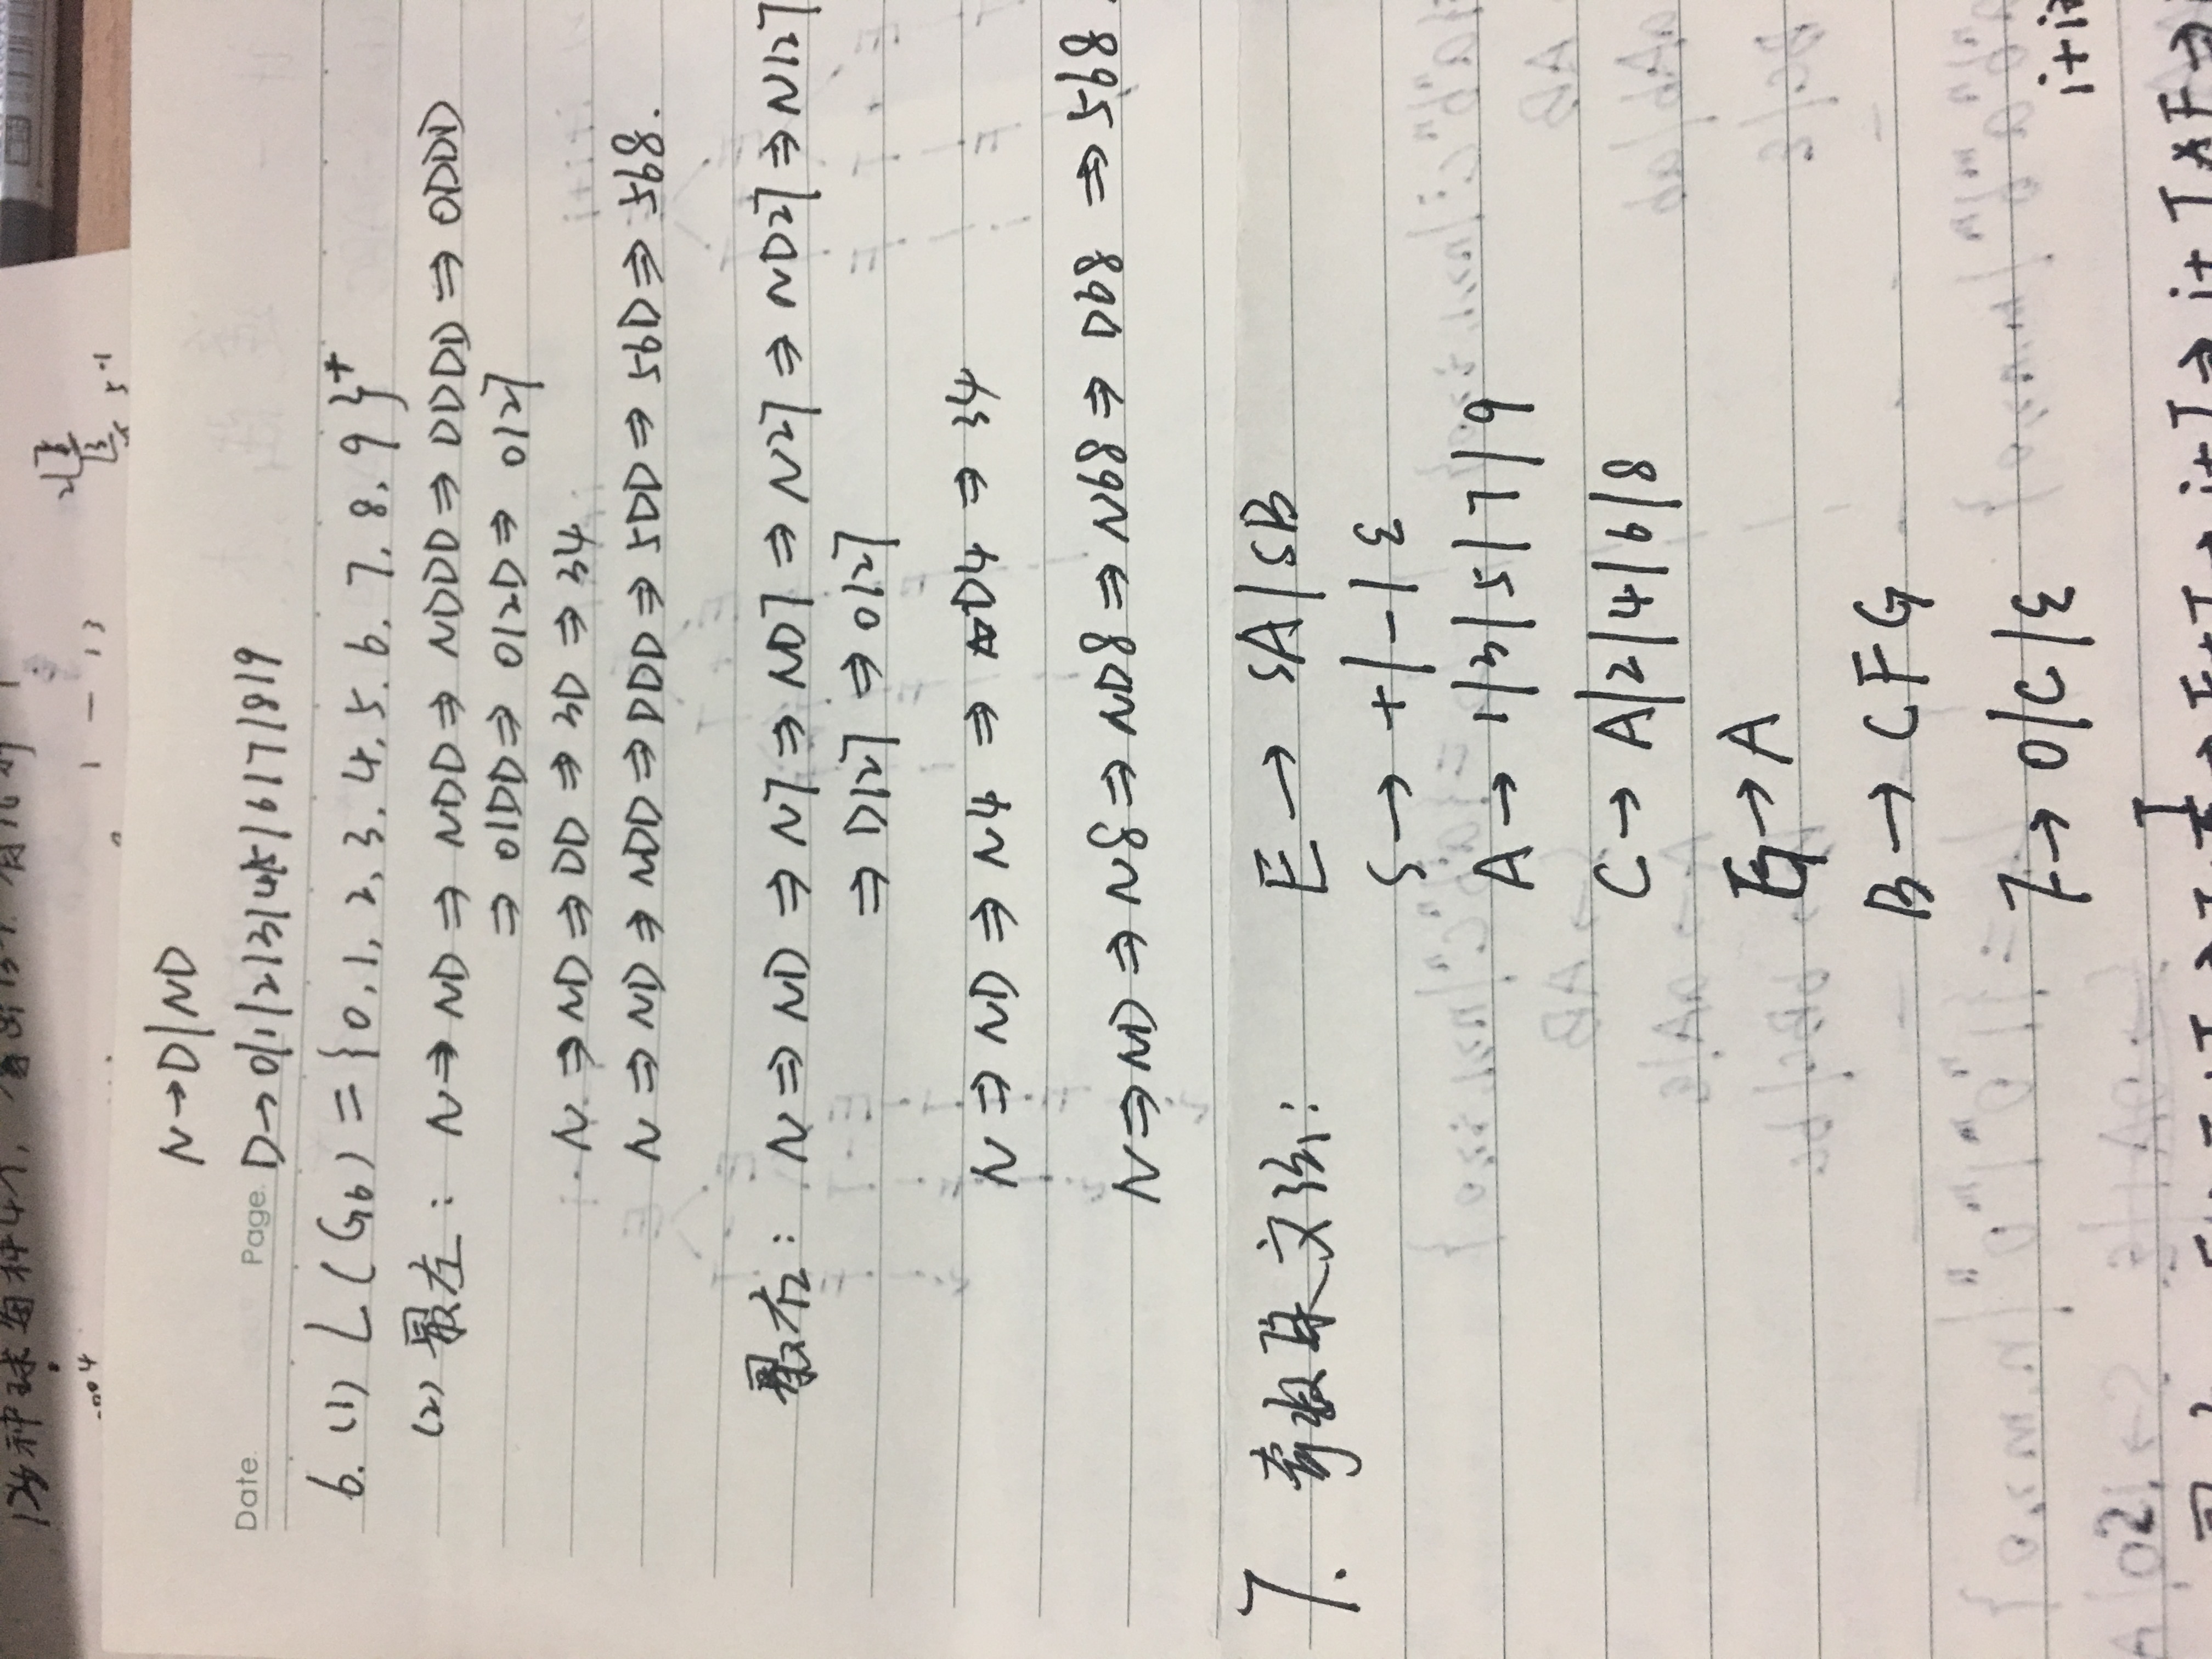 N→D|ND
Date. Page. D→0|1|2|3|4|5|6|7|8|9
6. (1) L(G6) = {0,1,2,3,4,5,6,7,8,9}+
(2) 最左: N⇒ND⇒NDD⇒NDDD⇒DDDD⇒0DDD
⇒01DD⇒012D⇒0127
N⇒ND⇒DD⇒3D⇒34
N⇒ND⇒NDD⇒DDD⇒5DD⇒56D⇒568.
最右: N⇒ND⇒N7⇒ND7⇒N27⇒ND27⇒N127
⇒D127⇒0127
N⇒ND⇒N4⇒D4⇒34
N⇒ND⇒N8⇒ND8⇒N68⇒D68⇒568.
7. 奇数集文法:
E→SA|SB
S→+|-|ε
A→1|3|5|7|9
C→A|2|4|6|8
G→A
B→CFG
F→0|C|ε